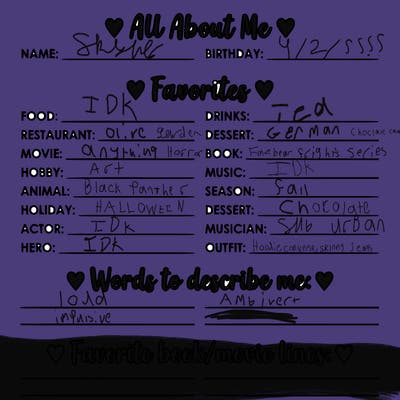 ♥ All About Me ♥
NAME: BIRTHDAY: 4/2/SSSS
♥ Favorites ♥
FOOD: IDK DRINKS: Tea
RESTAURANT: Olive Garden DESSERT: German Choclate
MOVIE: anything Horror BOOK: Series
HOBBY: Art MUSIC: IDK
ANIMAL: Black Panther SEASON: fall
HOLIDAY: HALLOWEEN DESSERT: Chocolate
ACTOR: IDK MUSICIAN: Sub urban
HERO: IDK OUTFIT: Hoodie, converse, skinny jeans
♥ Words to describe me: ♥
loud Ambivert
♥ Favorite book/movie lines: ♥